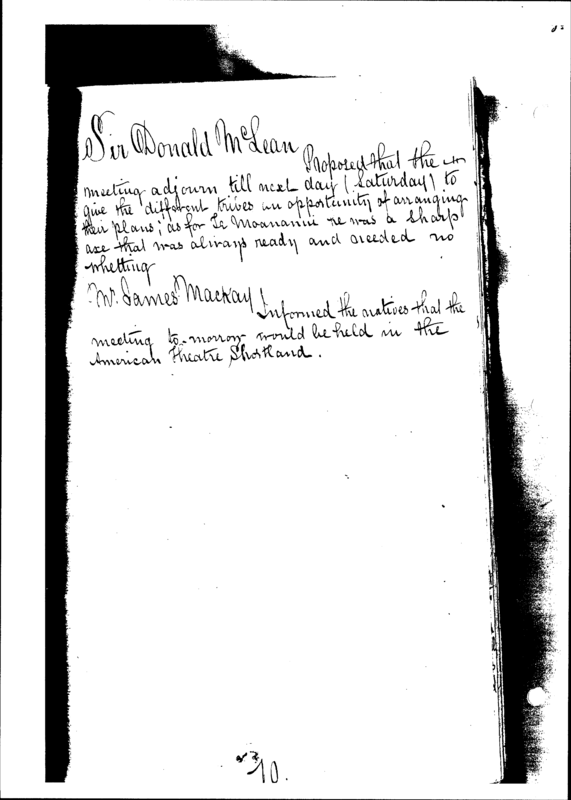 Sir Donald McLean Proposed that the
meeting adjourn till next day (Saturday) to
give the different tribes an opportunity of arranging
their plans; as for Te Moananui he was a sharp
axe that was always ready and needed no
whetting
Mr. James Mackay Informed the natives that the
meeting to-morrow would be held in the
American Theatre Shortland.
10.